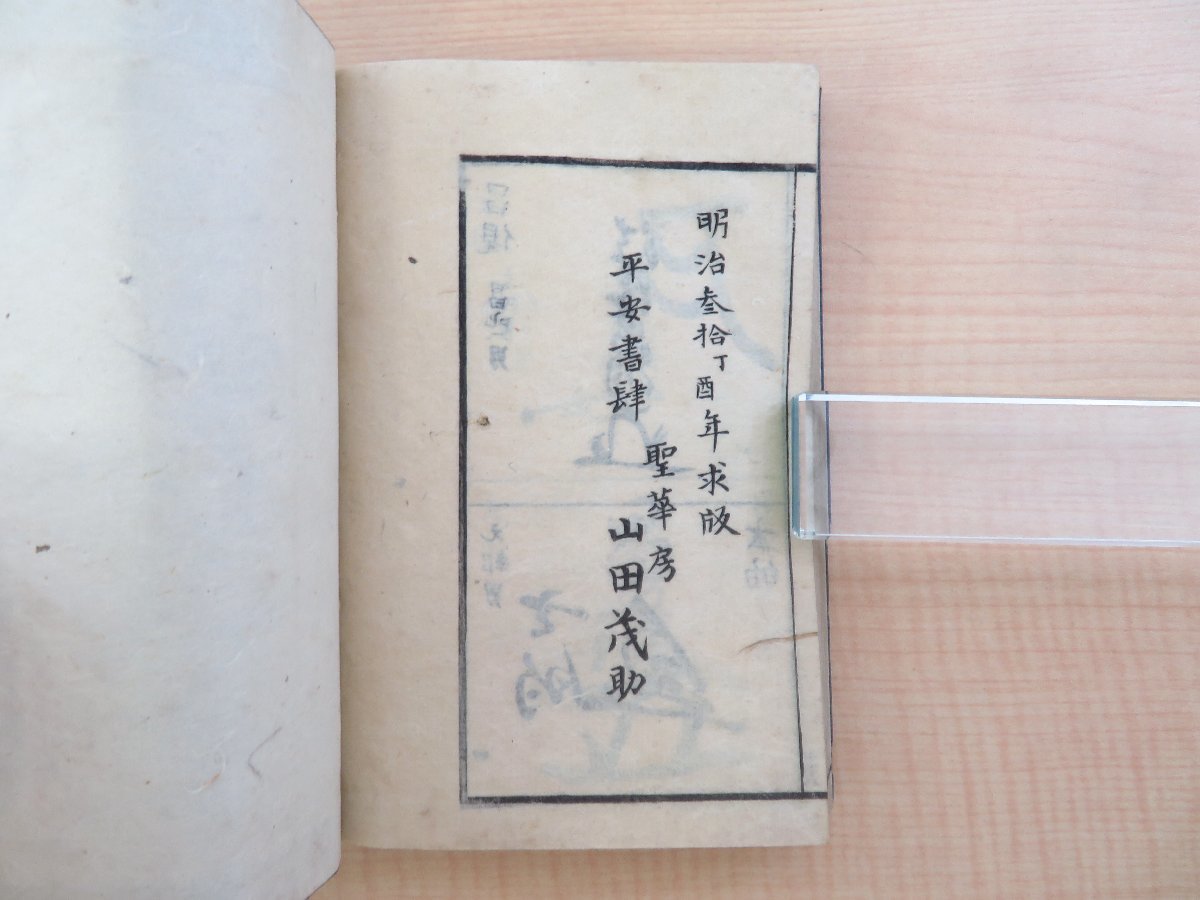 明治叁拾丁酉年求版
平安書肆
聖華房
山田茂助